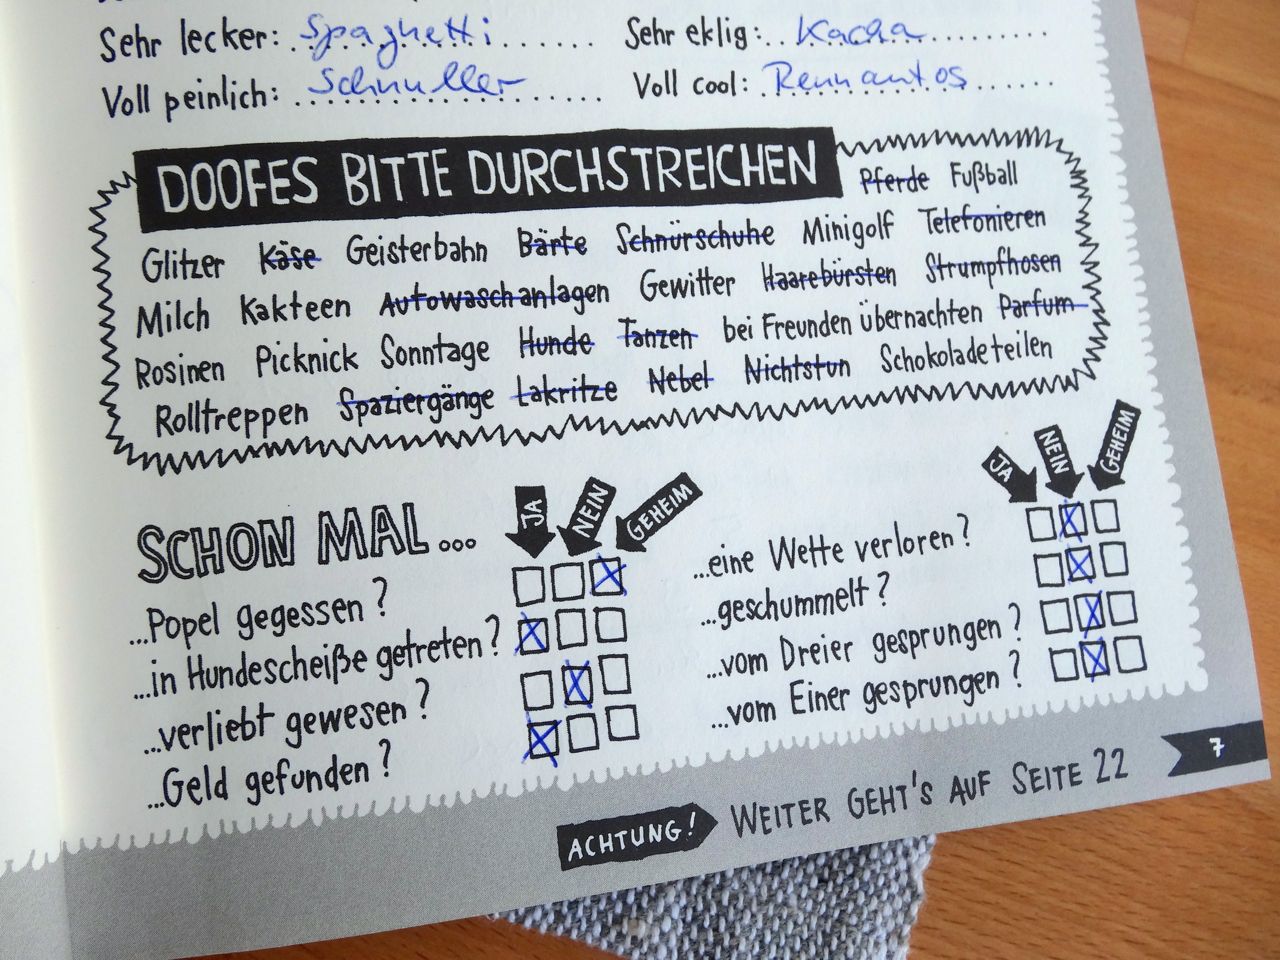 Sehr lecker: Spaghetti Sehr eklig: Kacka
Voll peinlich: Schnuller Voll cool: Rennautos
DOOFES BITTE DURCHSTREICHEN Pferde Fußball
Glitzer Käse Geisterbahn Bärte Schnürschuhe Minigolf Telefonieren
Milch Kakteen Autowaschanlagen Gewitter Haarebürsten Strumpfhosen
Rosinen Picknick Sonntage Hunde Tanzen bei Freunden übernachten Parfum
Rolltreppen Spaziergänge Lakritze Nebel Nichtstun Schokolade teilen
SCHON MAL... JA NEIN GEHEIM
...Popel gegessen?
...in Hundescheiße getreten?
...verliebt gewesen?
...Geld gefunden?
JA NEIN GEHEIM
...eine Wette verloren?
...geschummelt?
...vom Dreier gesprungen?
...vom Einer gesprungen?
ACHTUNG! WEITER GEHT'S AUF SEITE 22
7